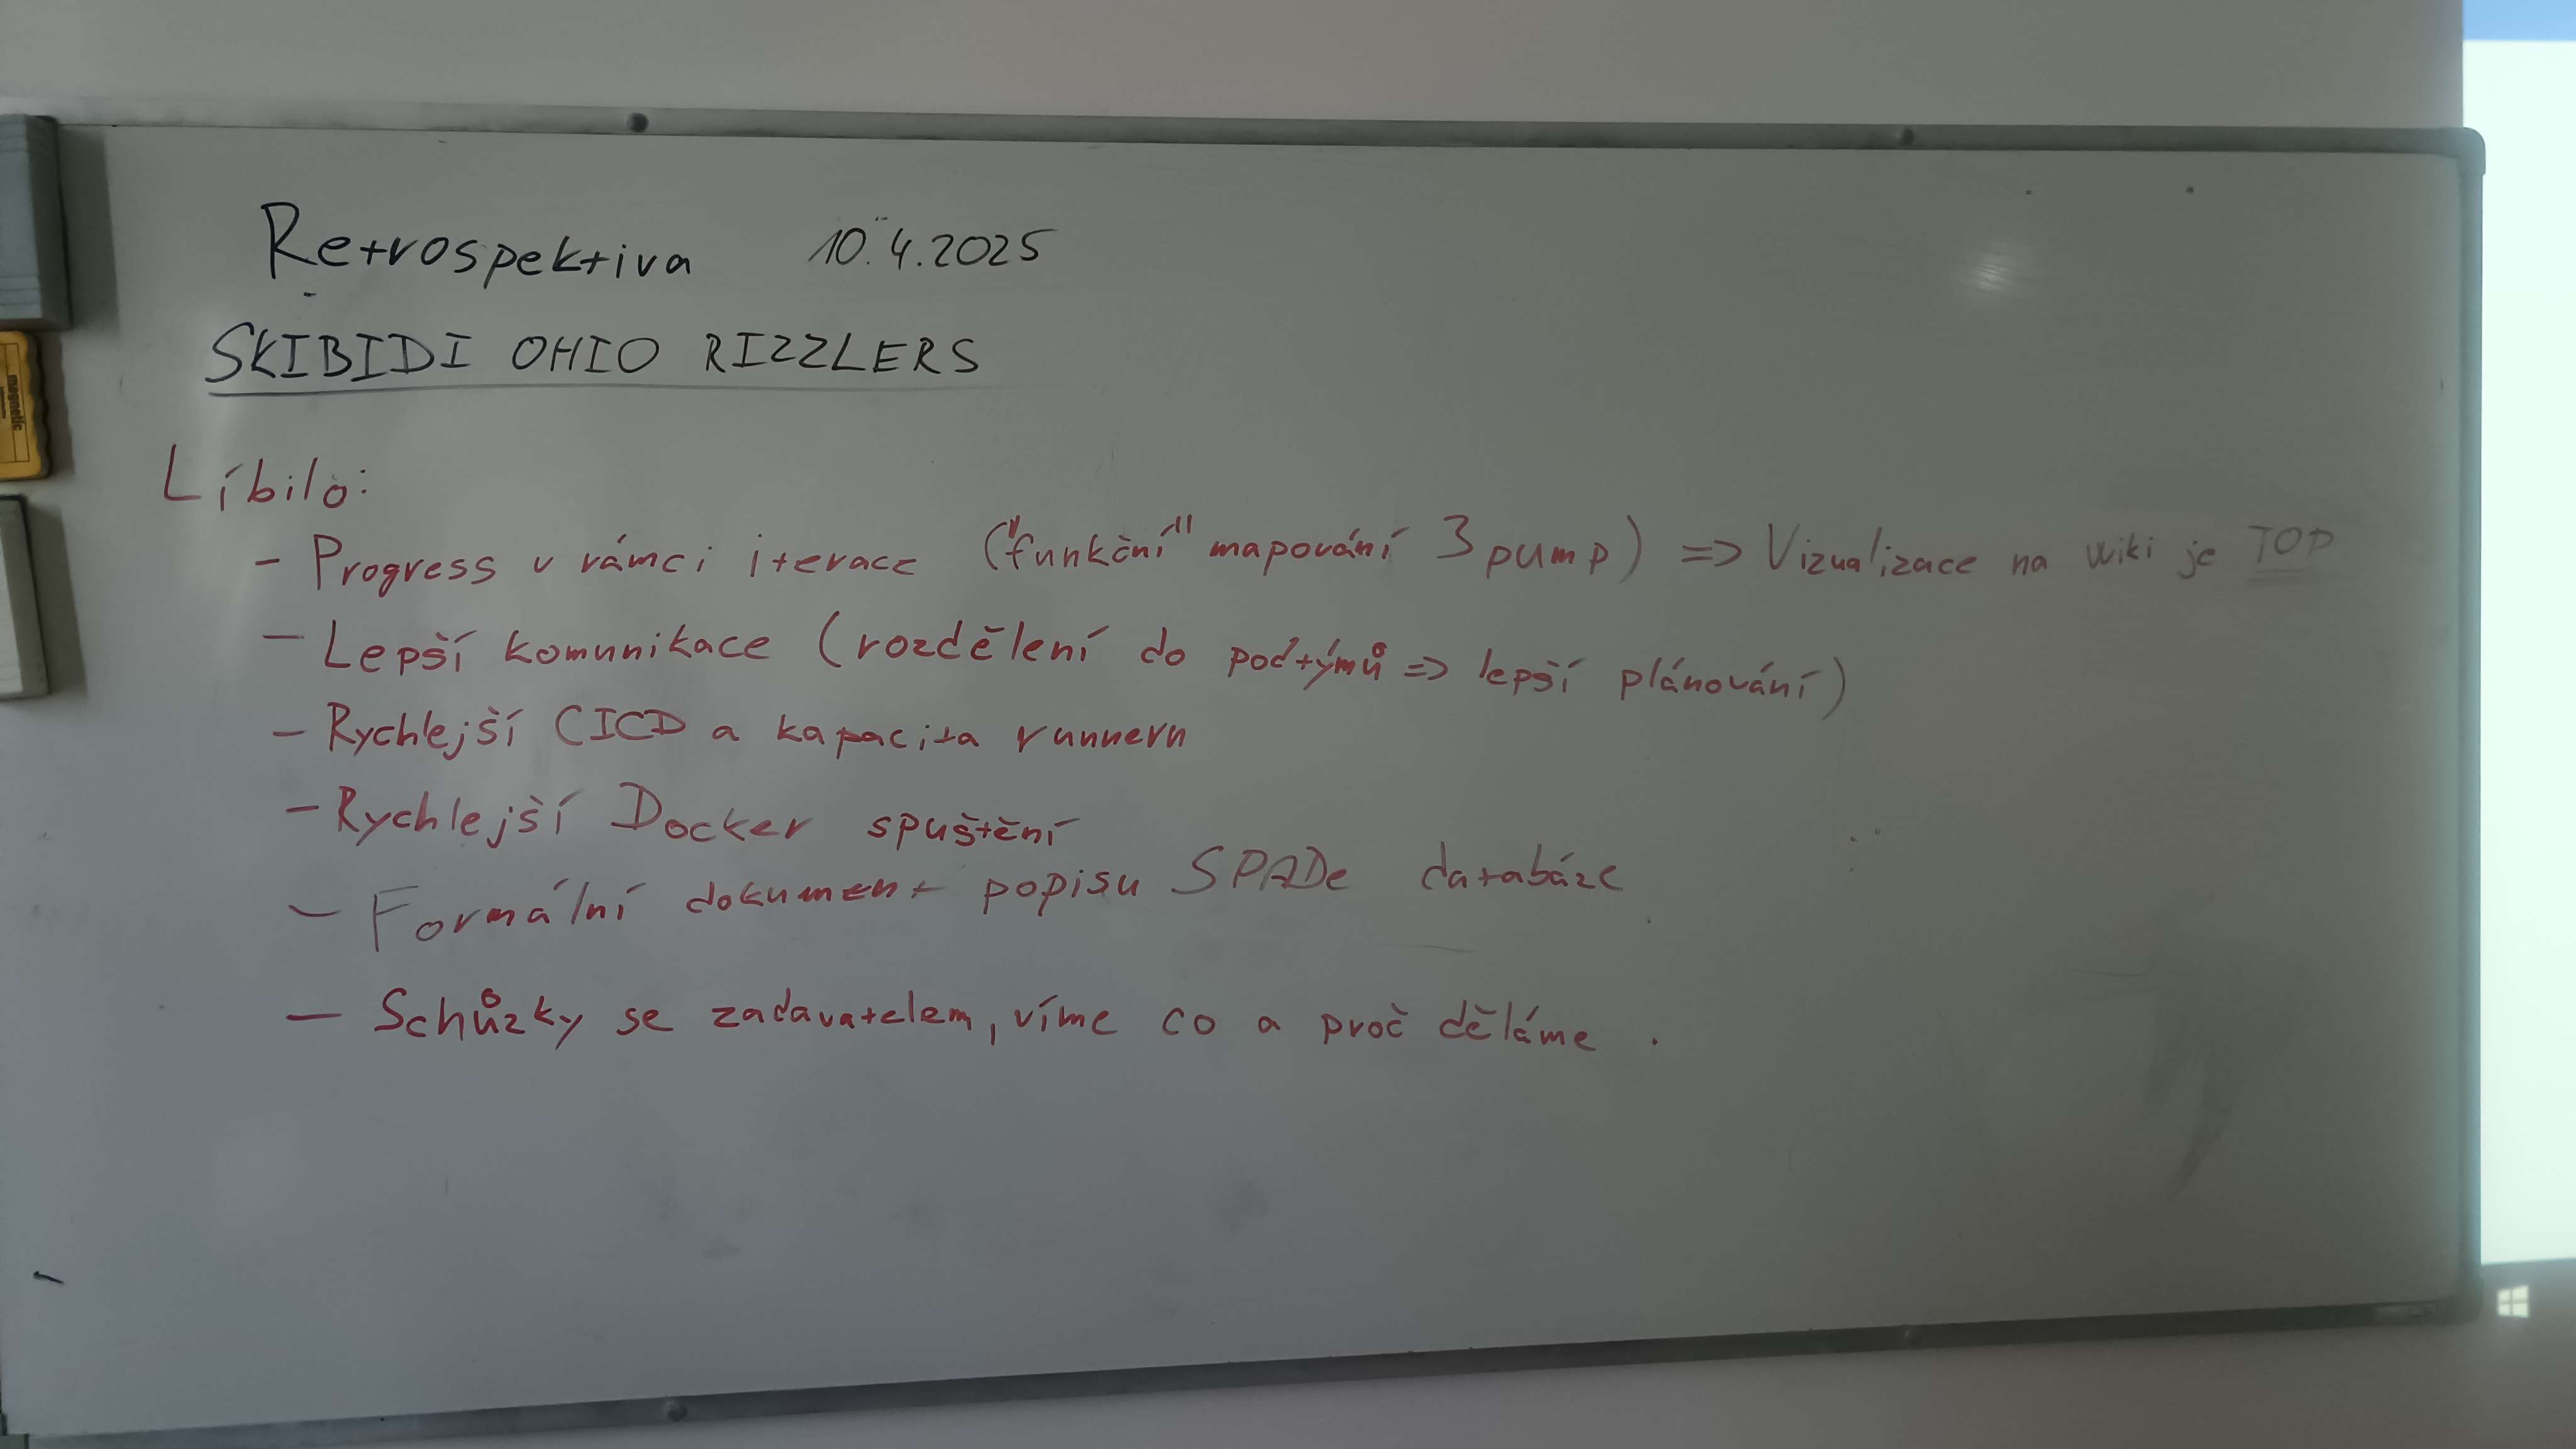 Retrospektiva 10.4.2025
SKIBIDI OHIO RIZZLERS
Líbilo:
- Progress v rámci iterace ("funkční" mapování 3 pump) => Vizualizace na wiki je TOP
- Lepší komunikace (rozdělení do podtýmů => lepší plánování)
- Rychlejší CICD a kapacita runneru
- Rychlejší Docker spuštění
- Formální dokument popisu SPADe databáze
- Schůzky se zadavatelem, víme co a proč děláme.
magnetic